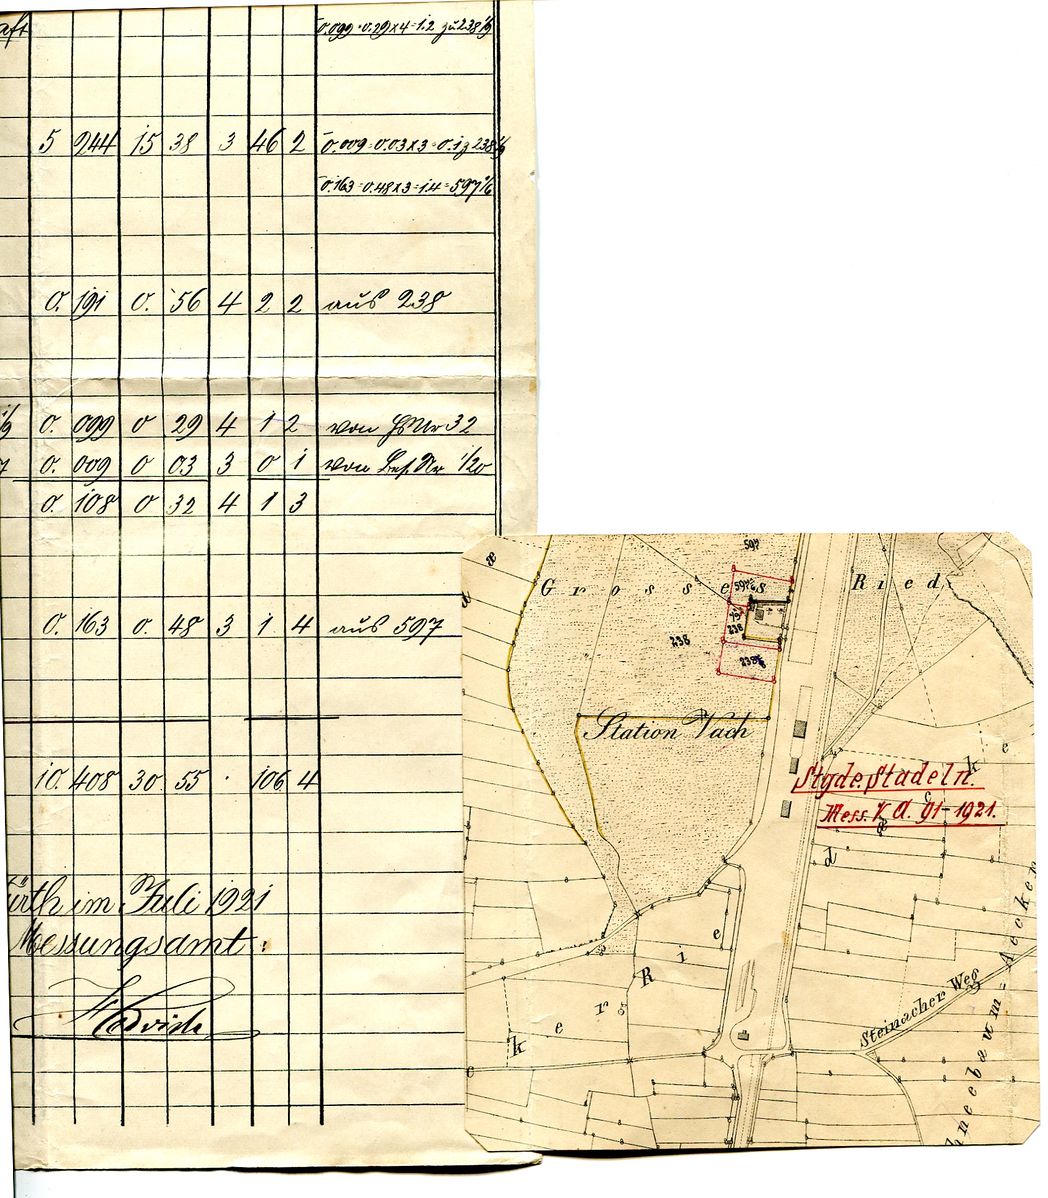 aft
0.099 = 0.29x4 = 1.2 zu 238 1/9
5 244 15 38 3 46 2 0.009 = 0.03x3 = 0.1 z 238 1/9
0.163 = 0.48x3 = 1.4 = 597 1/6
0. 191 0. 56 4 2 2 aus 238
1/9 0. 099 0 29 4 1 2 von HsNr 32
7 0. 009 0 03 3 0 1 von Bes. Nr 1/20
0. 108 0 32 4 1 3
0. 163 0. 48 3 1 4 aus 597
10. 408 30 55 . 106 4
Fürth im Juli 1921
Messungsamt:
597
Grosses Ried
597 1/6
238
238
238
Station Vach
Stgde. Stadeln.
Mess. V. A. 91-1921.
Rie
d
æ
c
k
e
k
e
r
Steinacher Weg
hneebaum=Aecker